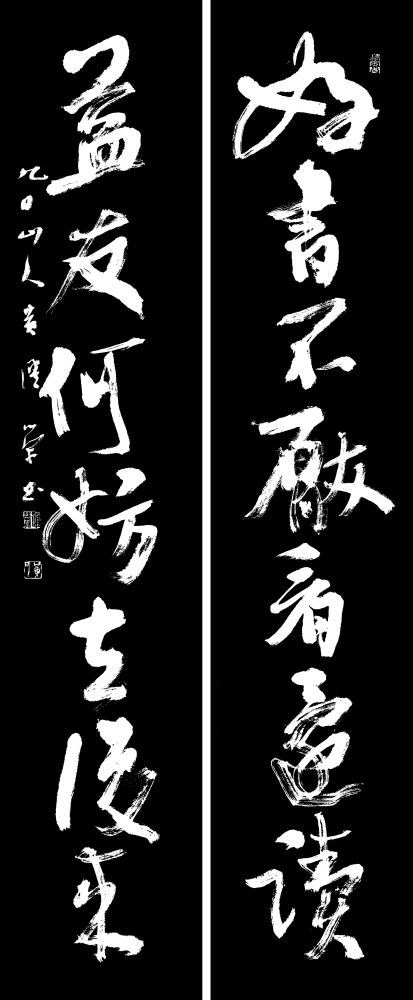 好書不厭看還讀
益友何妨去復來
九日山人黄